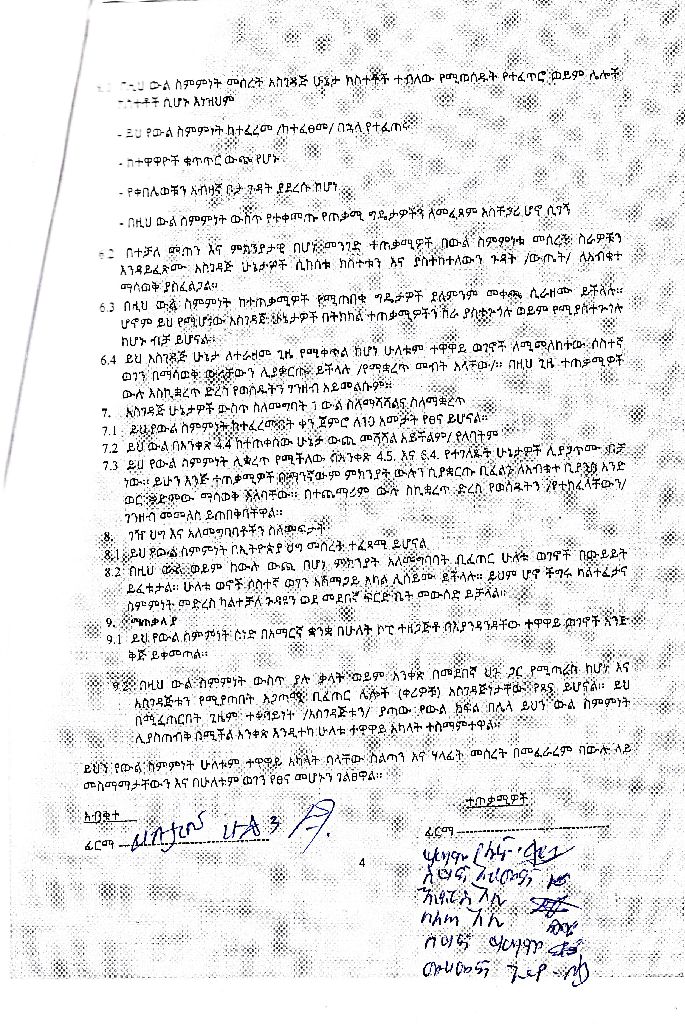 በዚህ ውል ስምምነት መሰረት አስገዳጅ ሁኔታ ክስተቶች ተብለው የሚወሰዱት የተፈጥሮ ወይም ሌሎች
ክስተቶች ሲሆኑ እነዝህም
- ይህ የውል ስምምነት ከተፈረመ /ከተፈፀመ/ በኋላ የተፈጠሩ
- ከተዋዋዮች ቁጥጥር ውጭ የሆኑ
- የቀበሌወቹን አብዛኛ ቦታ ጉዳት ያደረሱ ከሆነ
- በዚህ ውል ስምምነት ውስጥ የተቀመጡ የጠቃሚ ግዴታዎችን ለመፈጸም አስቸጋሪ ሆኖ ሲገኝ
6.2 በተቻለ መጠን እና ምክንያታዊ በሆነ መንገድ ተጠቃሚዎች በውል ስምምነቱ መሰረት ስራዎቹን
እንዳይፈጽሙ አስገዳጅ ሁኔታዎች ሲከሰቱ ክስተቱን እና ያስከተለውን ጉዳት /ውጤት/ ለአብቁተ
ማሳወቅ ያስፈልጋል።
6.3 በዚህ ውል ስምምነት ከተጠቃሚዎች የሚጠበቁ ግዴታዎች ያለምንም መቀጫ ሲራዘሙ ይችላሉ።
ሆኖም ይህ የሚሆነው አስገዳጅ ሁኔታዎች በትክክል ተጠቃሚዎችን ስራ ያስተጓጎሉ ወይም የሚያስተጓጎሉ
ከሆኑ ብቻ ይሆናል።
6.4 ይህ አስገዳጅ ሁኔታ ለተራዘመ ጊዜ የሚቀጥል ከሆነ ሁለቱም ተዋዋይ ወገኖች ለሚመለከተው ሶስተኛ
ወገን በማሳወቅ ውላቸውን ሊያቋርጡ ይችላሉ /የማቋረጥ መብት አላቸው/። በዚህ ጊዜ ተጠቃሚዎች
ውሉ እስኪቋረጥ ድረስ የወሰዱትን ገንዘብ አይመልሱም።
7. አስገዳጅ ሁኔታዎች ውስጥ ስለመግባት ፣ ውል ስለማሻሻልና ስለማቋረጥ
7.1 ይህ የውል ስምምነት ከተፈረመበት ቀን ጀምሮ ለ10 አመታት የፀና ይሆናል።
7.2 ይህ ውል በአንቀጽ 4.4 ከተጠቀሰው ሁኔታ ውጪ መሻሻል አይችልም/ የለበትም
7.3 ይህ የውል ስምምነት ሊቋረጥ የሚችለው በአንቀጽ 4.5. እና 6.4. የተገለጹት ሁኔታዎች ሊያጋጥሙ ብቻ
ነው። ይሁን እንጅ ተጠቃሚዎች በማንኛውም ምክንያት ውሉን ሲያቋርጡ ቢፈልጉ ለአብቁተ ቢያንስ አንድ
ወር ቀድመው ማሳወቅ አለባቸው። በተጨማሪም ውሉ ስኪቋረጥ ድረስ የወሰዱትን /የተከፈላቸውን/
ገንዘብ መመለስ ይጠበቅባቸዋል።
8. ገዥ ህግ እና አለመግባባቶችን ስለመፍታት
8.1 ይህ የውል ስምምነት በኢትዮጵያ ህግ መሰረት ተፈጻሚ ይሆናል
8.2 በዚህ ውል ወይም ከውሉ ውጪ በሆነ ምክንያት አለመግባባት ቢፈጠር ሁለቱ ወገኖች በውይይት
ይፈቱታል። ሁለቱ ወኖች ሶስተኛ ወገን አሸማጋይ አካል ሊሰይሙ ይችላሉ። ይህም ሆኖ ችግሩ ካልተፈታና
ስምምነት መድረስ ካልተቻለ ጉዳዩን ወደ መደበኛ ፍርድ ቤት መውሰድ ይቻላል።
9. ማጠቃለያ
9.1 ይህ የውል ስምምነት ሰነድ በአማርኛ ቋንቋ በሁለት ኮፒ ተዘጋጅቶ በእያንዳንዳቸው ተዋዋይ ወገኖች አንድ
ቅጅ ይቀመጣል።
9.2 በዚህ ውል ስምምነት ውስጥ ያሉ ቃላት ወይም አንቀጽ በመደበኛ ህጉ ጋር የሚጣረስ ከሆነ እና
አስገዳጅቱን የሚያጠበት አጋጣሚ ቢፈጠር ሌሎች (ቀሪዎቹ) አስገዳጅነታቸው የጸና ይሆናል። ይህ
በሚፈጠርበት ጊዜም ተቀባይነት /አስገዳጅቱን/ ያጣው የውል ክፍል በሌላ ይህን ውል ስምምነት
ሊያስጠብቅ በሚችል አንቀጽ እንዲተካ ሁለቱ ተዋዋይ አካላት ተስማምተዋል።
ይህን የውል ስምምነት ሁለቱም ተዋዋይ አካላት ባላቸው ስልጣን እና ሃላፊነት መሰረት በመፈራረም በውሉ ላይ
መስማማታቸውን እና በሁለቱም ወገን የፀና መሆኑን ገልፀዋል።
አብቁተ
ተጠቃሚዎች
ፊርማ
ፊርማ
4